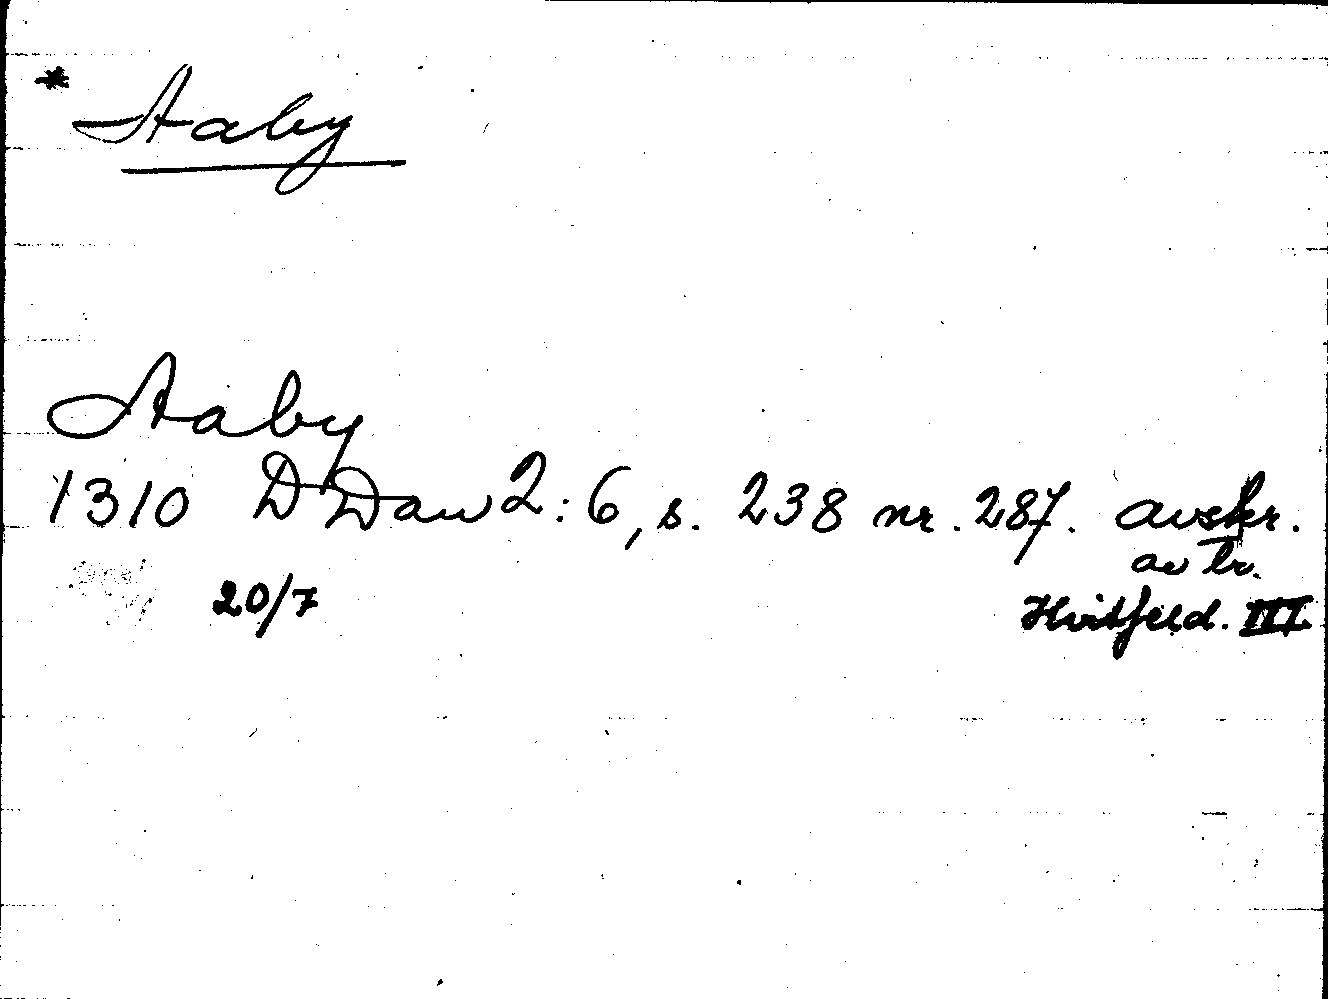 * Aaby
Aaby
1310 D Dan 2:6, s. 238 nr. 287. avskr.
av tr.
20/7 Hvitfeld. III.